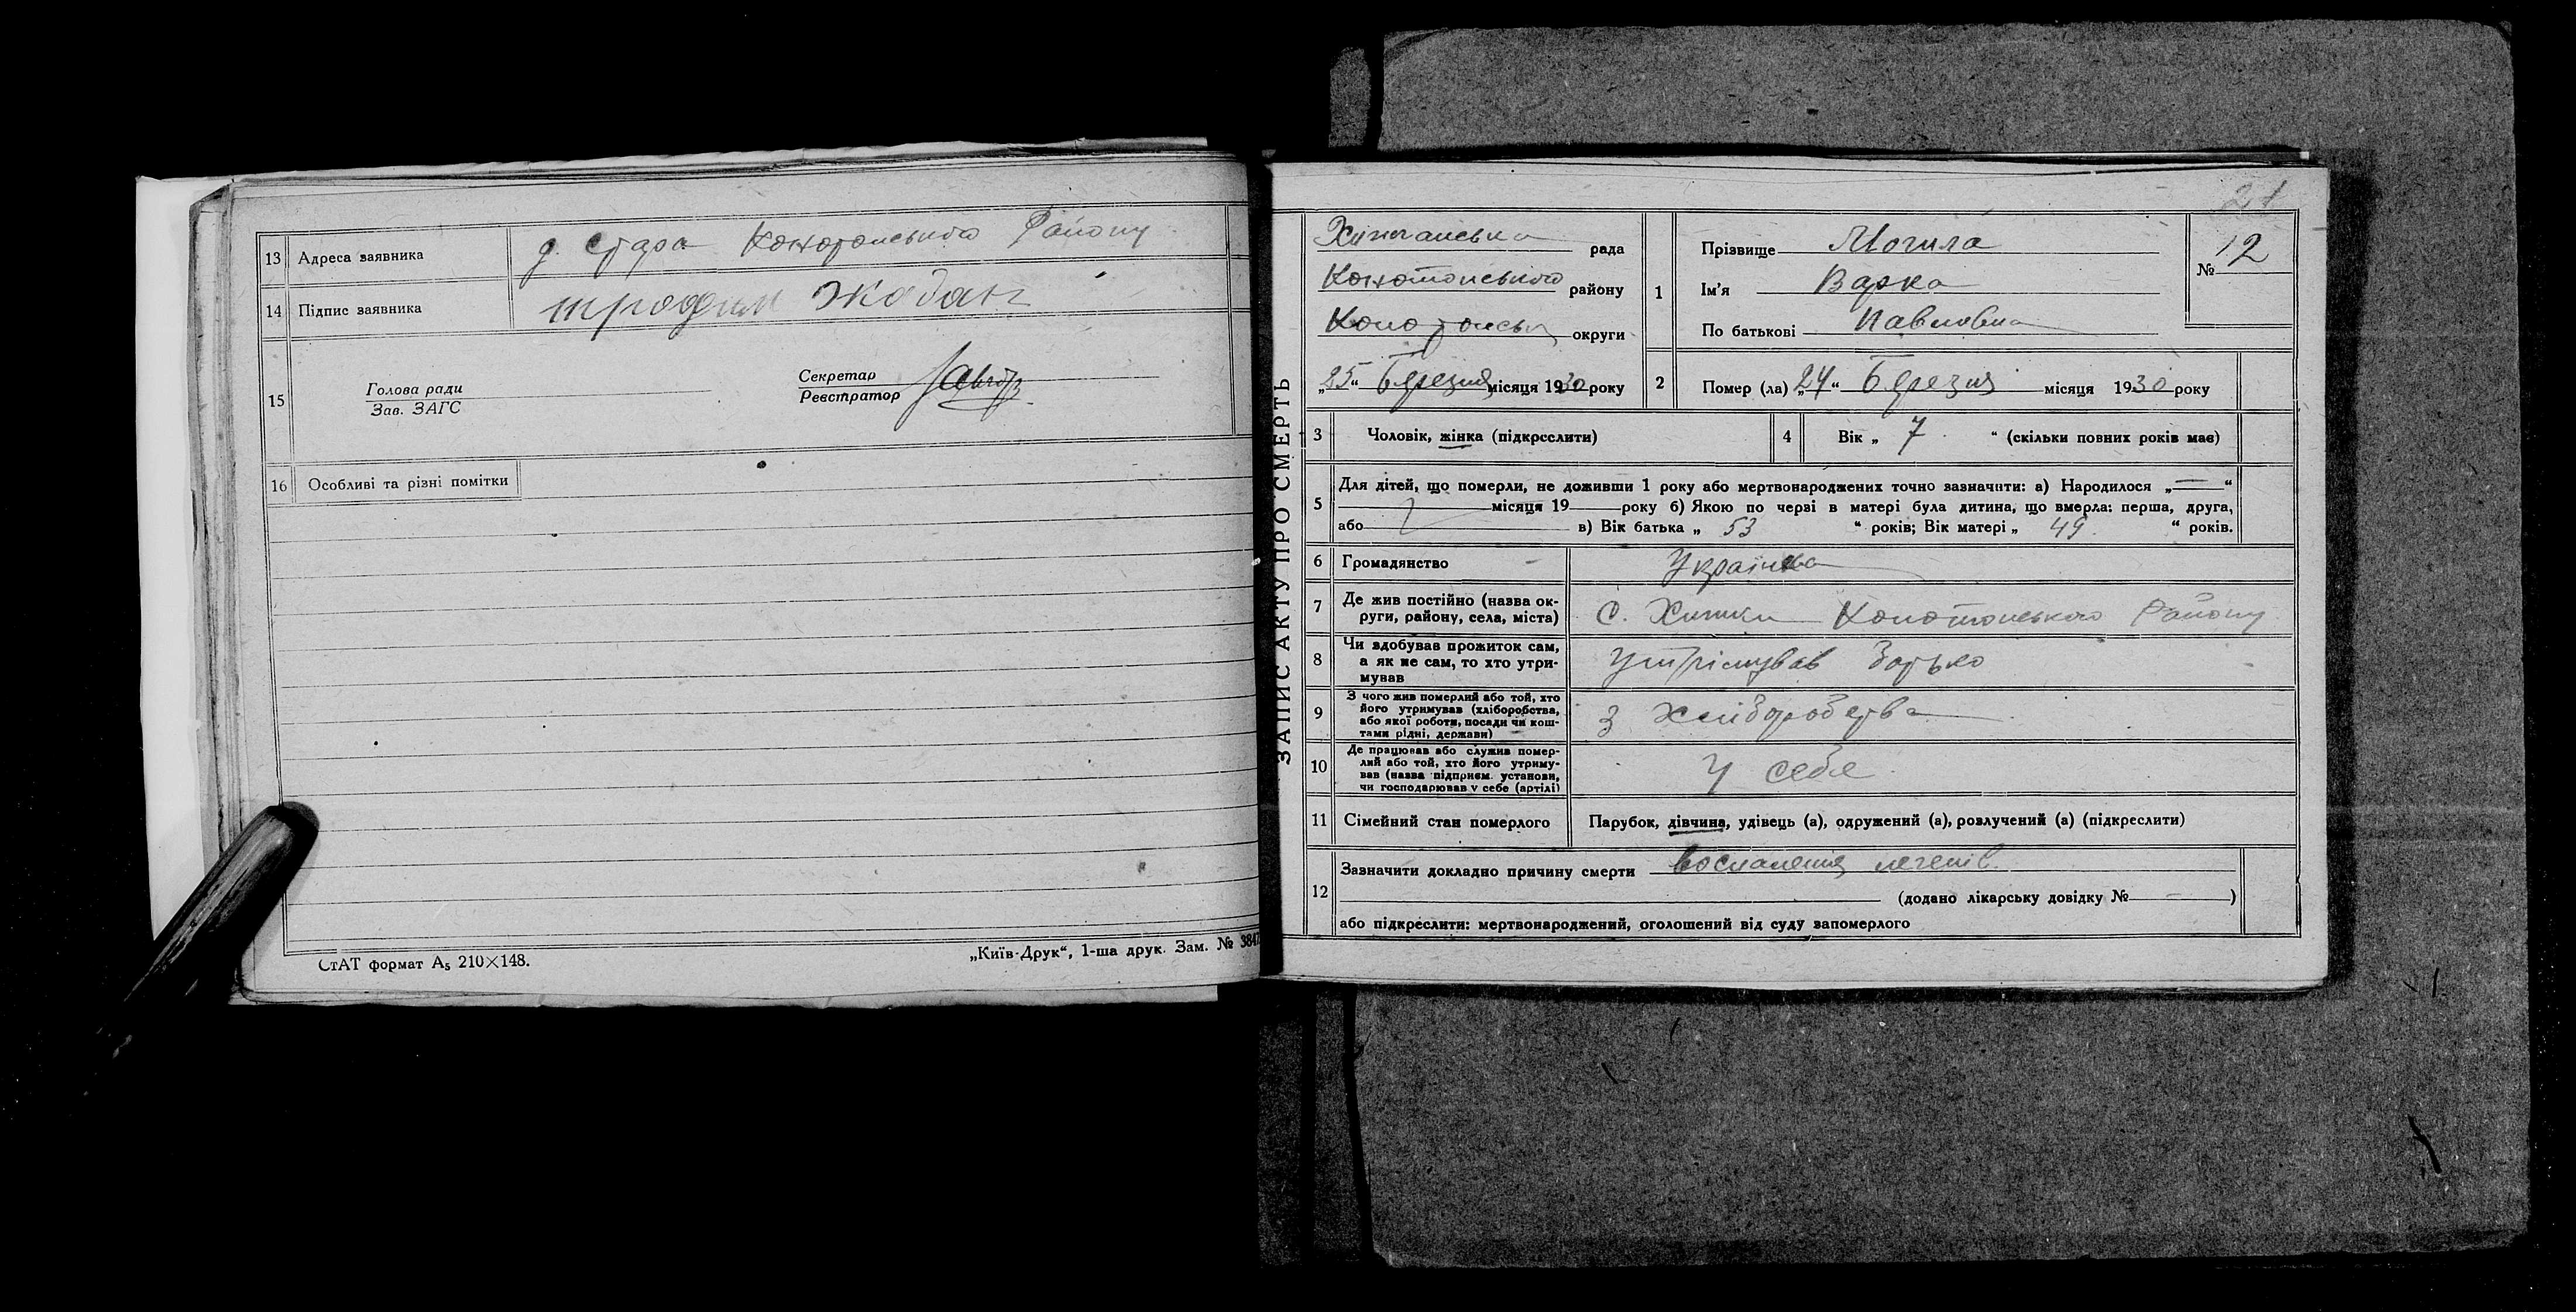 13 Адреса заявника д. Стара Конотопського Району
14 Підпис заявника Жобак
15 Голова ради
Зав. ЗАГС
Секретар
Реєстратор
16 Особливі та різні помітки
СтАТ формат А₅ 210×148.
„Київ-Друк“, 1-ша друк. Зам. № 3847
21
ЗАПИС АКТУ ПРО СМЕРТЬ
рада
Конотопського району
Конотопськ округи
„25“ Березня місяця 1930 року
1 Прізвище Могила
Ім'я Варка
По батькові Павловна
№ 12
2 Помер (ла) „24“ Березня місяця 1930 року
3 Чоловік, жінка (підкреслити)
4 Вік „ 7 “ (скільки повних років має)
5 Для дітей, що померли, не доживши 1 року або мертвонароджених точно зазначити: а) Народилося „—“
місяця 19 року б) Якою по черзі в матері була дитина, що вмерла: перша, друга,
або в) Вік батька „ 53 “ років; Вік матері „ 49 “ років.
6 Громадянство Українка
7 Де жив постійно (назва ок-
руги, району, села, міста) С. Хижки Конотопського Району
8 Чи здобував прожиток сам,
а як не сам, то хто утри-
мував Утрімував Батько
9 З чого жив померлий або той, хто
його утримував (хліборобства,
або якої роботи, посади чи кош-
тами рідні, держави) З Хліборобства
10 Де працював або служив помер-
лий або той, хто його утриму-
вав (назва підприєм. установи,
чи господарював у себе (артілі) У себе
11 Сімейний стан померлого Парубок, дівчина, удівець (а), одружений (а), розлучений (а) (підкреслити)
12 Зазначити докладно причину смерти воспаления легенів
(додано лікарську довідку № — )
або підкреслити: мертвонароджений, оголошений від суду запомерлого